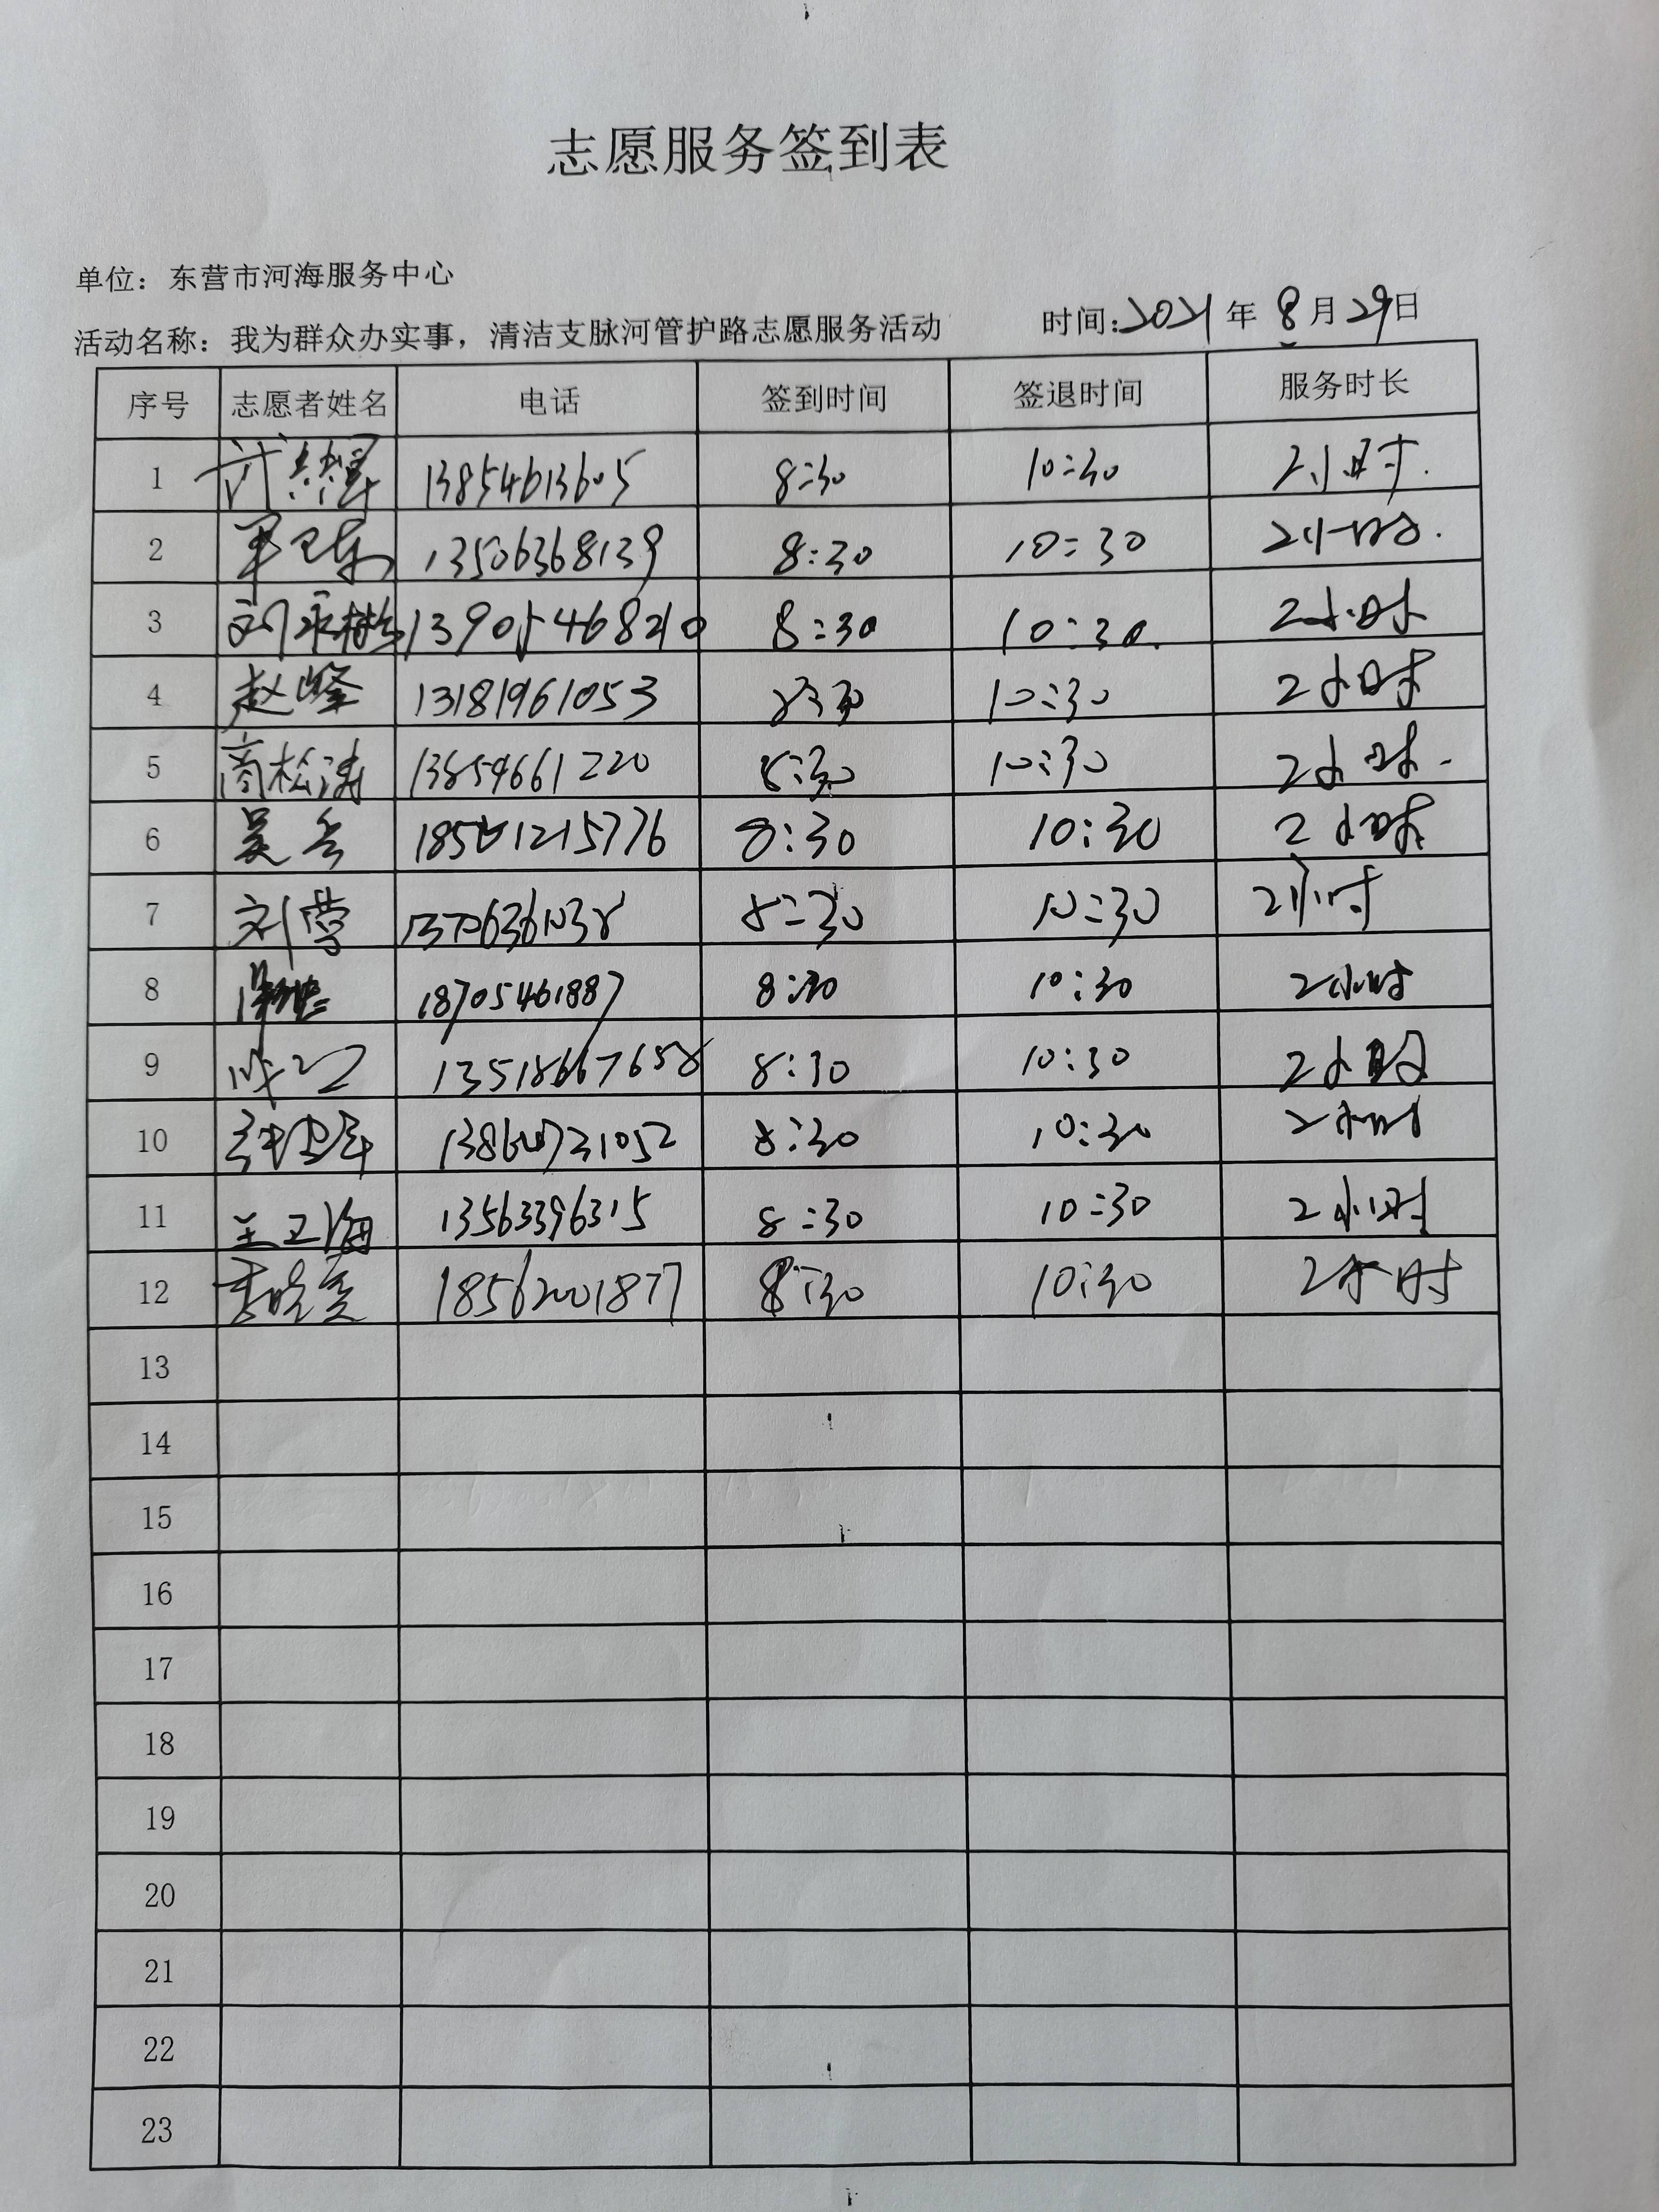 志愿服务签到表
单位：东营市河海服务中心
活动名称：我为群众办实事，清洁支脉河管护路志愿服务活动 时间：2021年8月29日
序号 志愿者姓名 电话 签到时间 签退时间 服务时长
1 13854613605 8:30 10:30 2小时.
2 13506368139 8:30 10:30 2小时.
3 刘永樹 13905468210 8:30 10:30. 2小时
4 赵峰 13181961053 8:30 10:30 2小时
5 商松涛 13854661220 8:30 10:30 2小时.
6 8:30 10:30 2小时
7 刘营 8:30 10:30 2小时
8 18705461887 8:30 10:30 2小时
9 8:30 10:30 2小时
10 8:30 10:30 2小时
11 王卫海 13563396315 8:30 10:30 2小时
12 李晓雯 18562001877 8:30 10:30 2小时
13
14
15
16
17
18
19
20
21
22
23